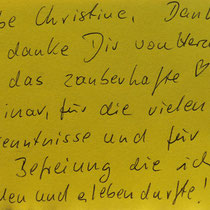 be Christine, Dank
danke Dir von Herz
das zauberhafte ♡
inar, für die vielen
enntnisse und für
Befreiung die ich
en und erleben durfte!